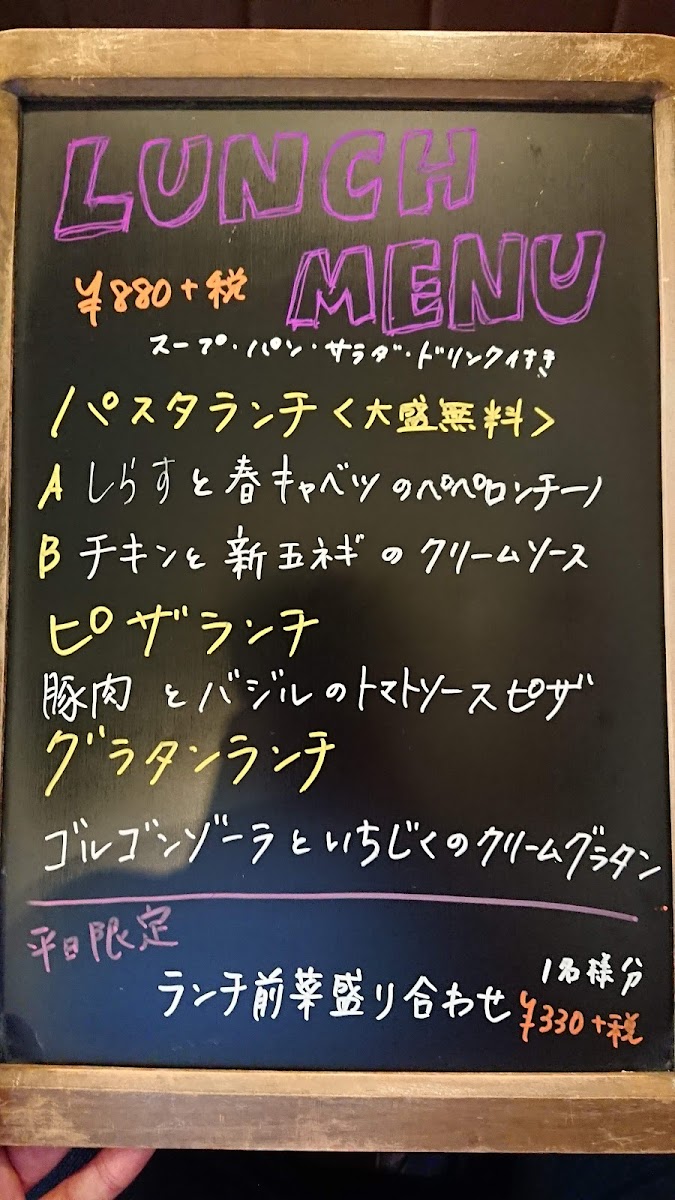 LUNCH
MENU
¥880+税
スープ・パン・サラダ・ドリンク付き
パスタランチ<大盛無料>
A しらすと春キャベツのペペロンチーノ
B チキンと新玉ネギのクリームソース
ピザランチ
豚肉とバジルのトマトソースピザ
グラタンランチ
ゴルゴンゾーラといちじくのクリームグラタン
平日限定
1名様分
ランチ前菜盛り合わせ ¥330+税